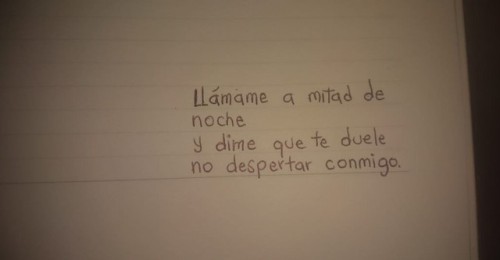 Llámame a mitad de
noche
y dime que te duele
no despertar conmigo.